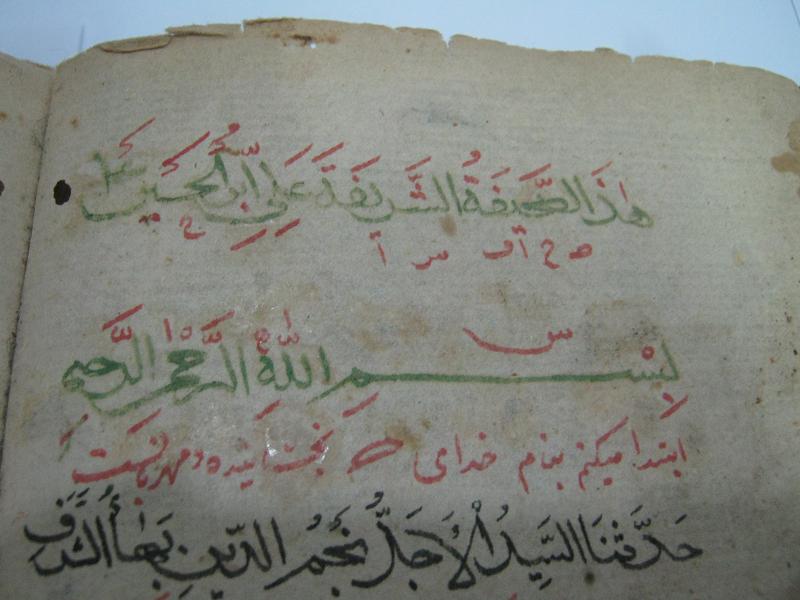 هٰذَا الصَّحِيفَةُ الشَّرِيفَةُ عَلِيِّ ابْنِ الْحُسَيْنِ
بِسْمِ اللّٰهِ الرَّحْمٰنِ الرَّحِيمِ
ابتدا میکنم بنام خدای که بخشاینده و مهربانست
حَدَّثَنَا السَّيِّدُ الْأَجَلُّ نَجْمُ الدِّينِ بَهَاءُ الشَّرَفِ